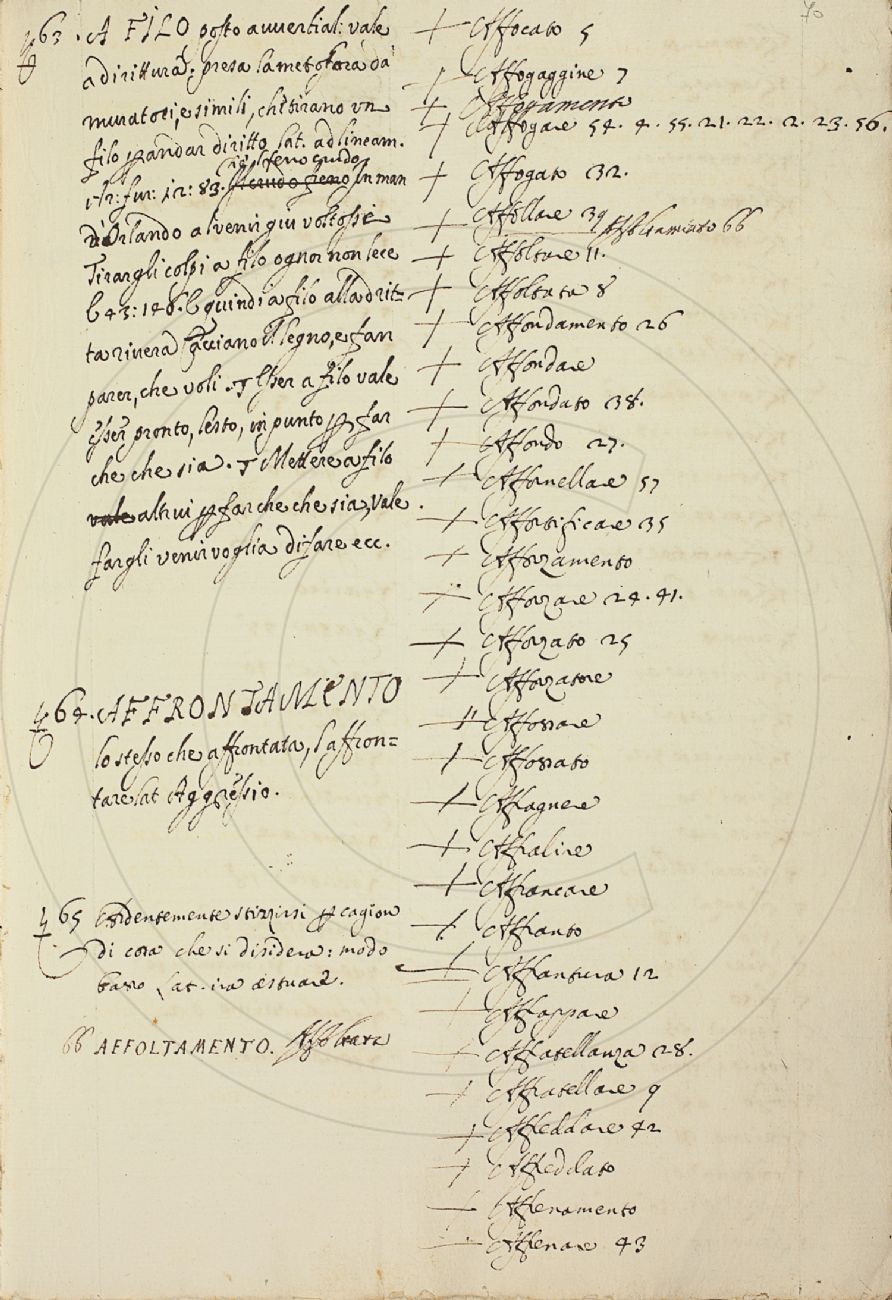 70
63. A FILO posto avverbial: vale
a dirittura: presa la metafora da
muratori, e simili, che tirano un
filo p andar diritto lat. ad lineam.
Ar: fur: 12: 83.
freno in man
d'Orlando al venir giù voltossi e
Tirargli colpi a filo ognor non lece
E 43: 146. E quindi a filo alla drit=
ta riviera Cacciano il legno, e fan
parer, che voli. Esser a filo vale
esser pronto, lesto, in punto p far
che che sia. Mettere a filo
vale altrui p far che che sia, vale
fargli venir voglia di fare ecc.
64. AFFRONTAMENTO
lo stesso che affrontata, l'affron=
tare lat Aggressio.
65 Ardentemente stizzirsi p cagion
di cosa che si disidera: modo
basso Lat. ira aestuare.
66 AFFOLTAMENTO. Affoltata
Affocato 5
Affogaggine 7
Affogamento
Affogare 54. 4. 55. 21. 22. 2. 23. 56.
Affogato 32.
Affollare 39 Affoltamento 66
Affoltare 11.
Affoltata 8
Affondamento 26
Affondare
Affondato 38.
Affondo 27.
Affornellare 57
Affortificare 35
Afforzamento
Afforzare 24. 41.
Afforzato 25
Afforzatore
Affossare
Affossato
Affragnere
Affralire
Affrancare
Affranto
Affrantura 12
Affrappare
Affratellanza 28.
Affratellare 9
Affreddare 42
Affreddato
Affrenamento
Affrenare 43